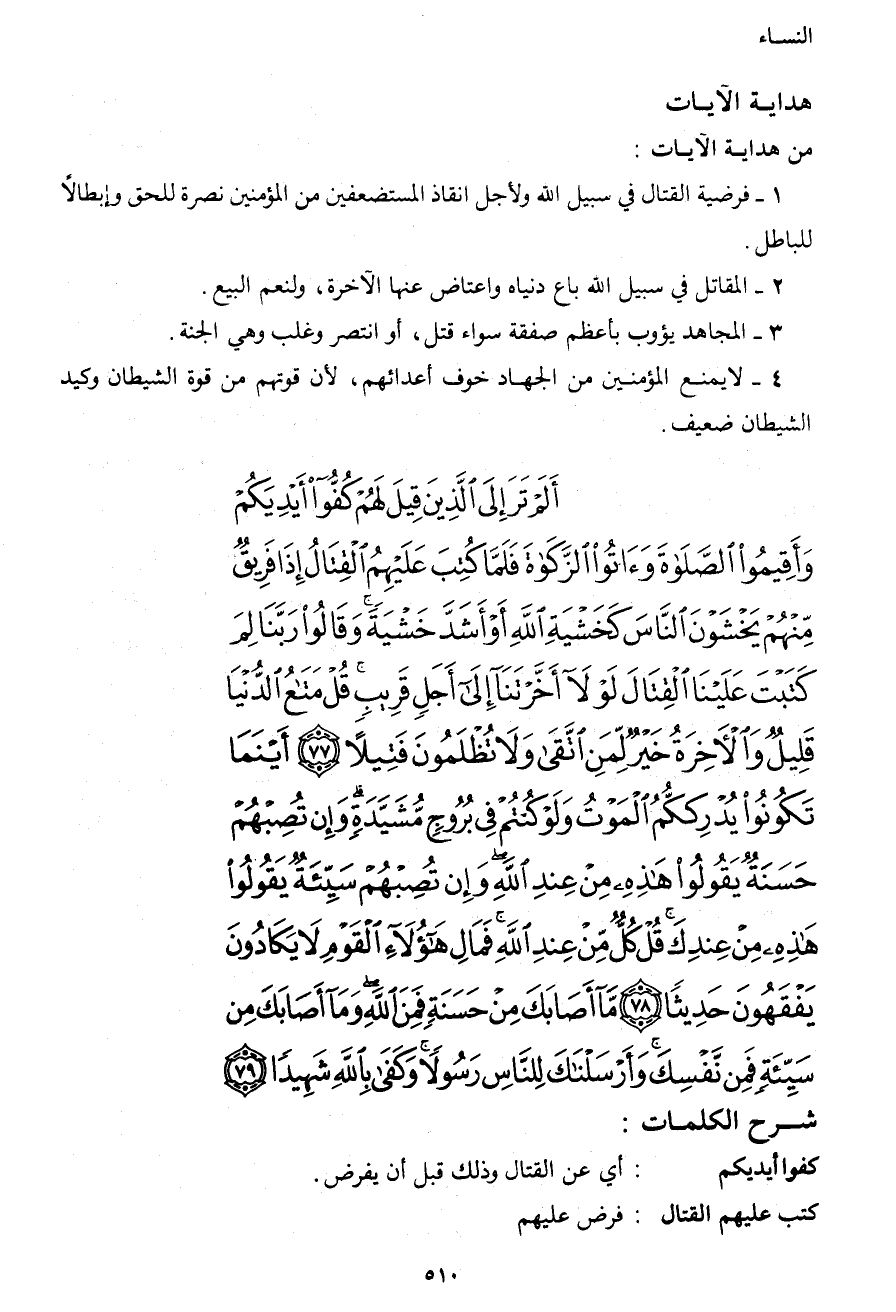 النساء
هداية الآيات
من هداية الآيات :
١ ـ فرضية القتال في سبيل الله ولأجل انقاذ المستضعفين من المؤمنين نصرة للحق وإبطالاً
للباطل .
٢ ـ المقاتل في سبيل الله باع دنياه واعتاض عنها الآخرة، ولنعم البيع .
٣ ـ المجاهد يؤوب بأعظم صفقة سواء قتل، أو انتصر وغلب وهي الجنة .
٤ ـ لايمنع المؤمنين من الجهاد خوف أعدائهم، لأن قوتهم من قوة الشيطان وكيد
الشيطان ضعيف .
أَلَمْ تَرَ إِلَى ٱلَّذِينَ قِيلَ لَهُمْ كُفُّوٓا۟ أَيْدِيَكُمْ
وَأَقِيمُوا۟ ٱلصَّلَوٰةَ وَءَاتُوا۟ ٱلزَّكَوٰةَ فَلَمَّا كُتِبَ عَلَيْهِمُ ٱلْقِتَالُ إِذَا فَرِيقٌ
مِّنْهُمْ يَخْشَوْنَ ٱلنَّاسَ كَخَشْيَةِ ٱللَّهِ أَوْ أَشَدَّ خَشْيَةً ۚ وَقَالُوا۟ رَبَّنَا لِمَ
كَتَبْتَ عَلَيْنَا ٱلْقِتَالَ لَوْلَآ أَخَّرْتَنَآ إِلَىٰٓ أَجَلٍ قَرِيبٍ ۗ قُلْ مَتَـٰعُ ٱلدُّنْيَا
قَلِيلٌ وَٱلْـَٔاخِرَةُ خَيْرٌ لِّمَنِ ٱتَّقَىٰ وَلَا تُظْلَمُونَ فَتِيلًا ٧٧ أَيْنَمَا
تَكُونُوا۟ يُدْرِككُّمُ ٱلْمَوْتُ وَلَوْ كُنتُمْ فِى بُرُوجٍ مُّشَيَّدَةٍ ۗ وَإِن تُصِبْهُمْ
حَسَنَةٌ يَقُولُوا۟ هَـٰذِهِۦ مِنْ عِندِ ٱللَّهِ ۖ وَإِن تُصِبْهُمْ سَيِّئَةٌ يَقُولُوا۟
هَـٰذِهِۦ مِنْ عِندِكَ ۚ قُلْ كُلٌّ مِّنْ عِندِ ٱللَّهِ ۖ فَمَالِ هَـٰٓؤُلَآءِ ٱلْقَوْمِ لَا يَكَادُونَ
يَفْقَهُونَ حَدِيثًا ٧٨ مَّآ أَصَابَكَ مِنْ حَسَنَةٍ فَمِنَ ٱللَّهِ ۖ وَمَآ أَصَابَكَ مِن
سَيِّئَةٍ فَمِن نَّفْسِكَ ۚ وَأَرْسَلْنَـٰكَ لِلنَّاسِ رَسُولًا ۚ وَكَفَىٰ بِٱللَّهِ شَهِيدًا ٧٩
شرح الكلمات :
كفوا أيديكم : أي عن القتال وذلك قبل أن يفرض .
كتب عليهم القتال : فرض عليهم
٥١٠